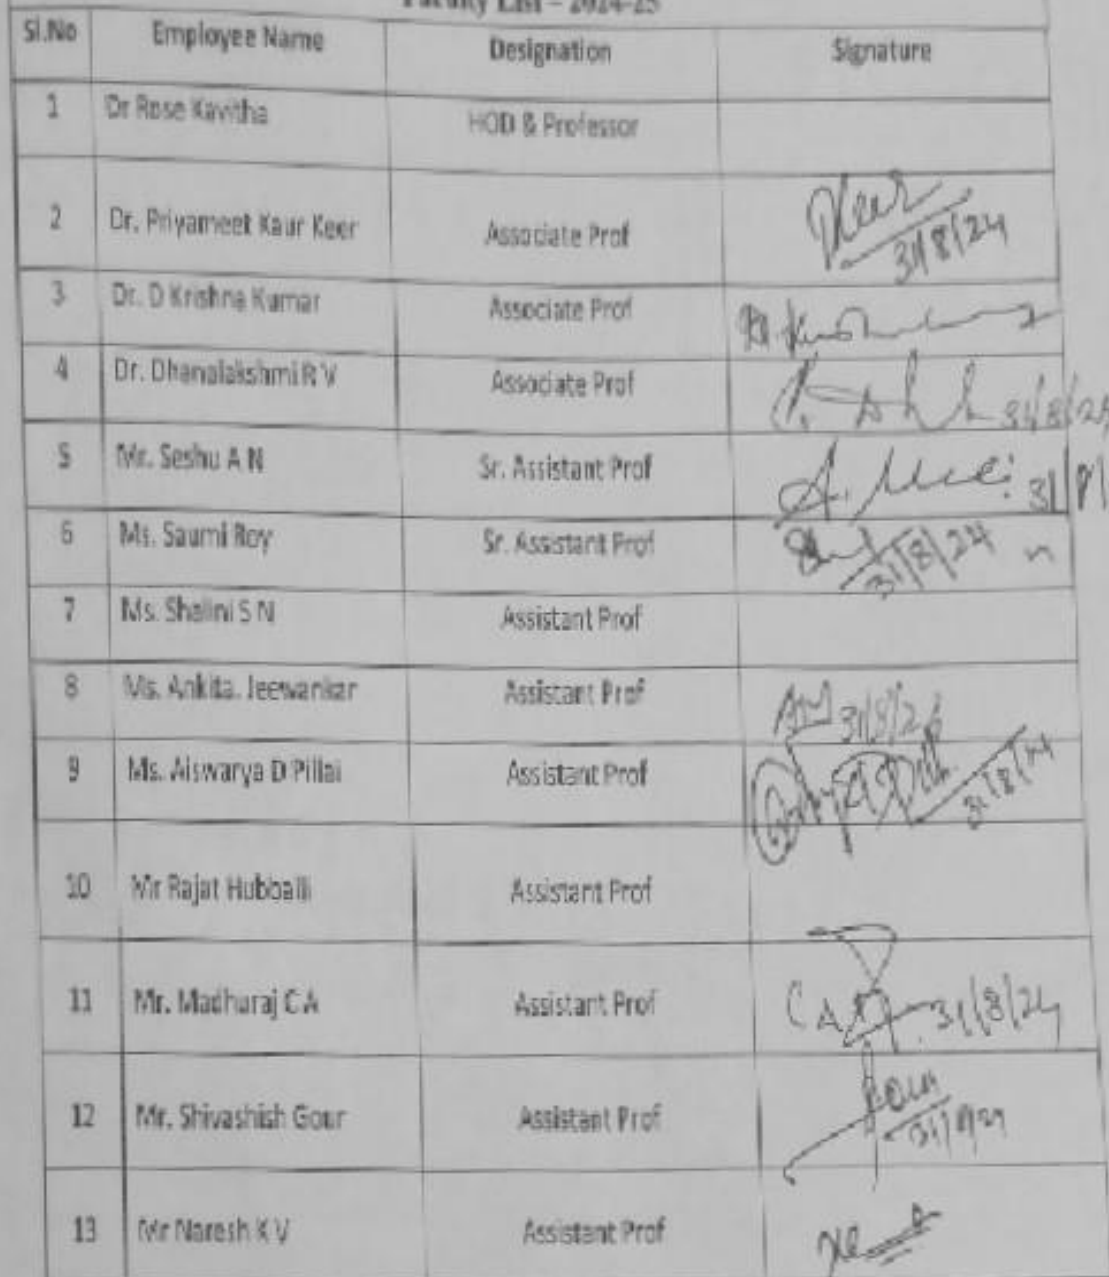 Faculty List – 2024-25
Sl.No Employee Name Designation Signature
1 Dr Rose Kavitha HOD & Professor
2 Dr. Priyameet Kaur Keer Associate Prof Keer 31/8/24
3 Dr. D Krishna Kumar Associate Prof
4 Dr. Dhanalakshmi R V Associate Prof 31/8/24
5 Mr. Seshu A N Sr. Assistant Prof 31/8/
6 Ms. Saumi Roy Sr. Assistant Prof 31/8/24
7 Ms. Shalini S N Assistant Prof
8 Ms. Ankita. Jeewankar Assistant Prof 31/8/24
9 Ms. Aiswarya D Pillai Assistant Prof 31/8/24
10 Mr Rajat Hubballi Assistant Prof
11 Mr. Madhuraj C A Assistant Prof 31/8/24
12 Mr. Shivashish Gour Assistant Prof Gour 31/8/24
13 Mr Naresh K V Assistant Prof